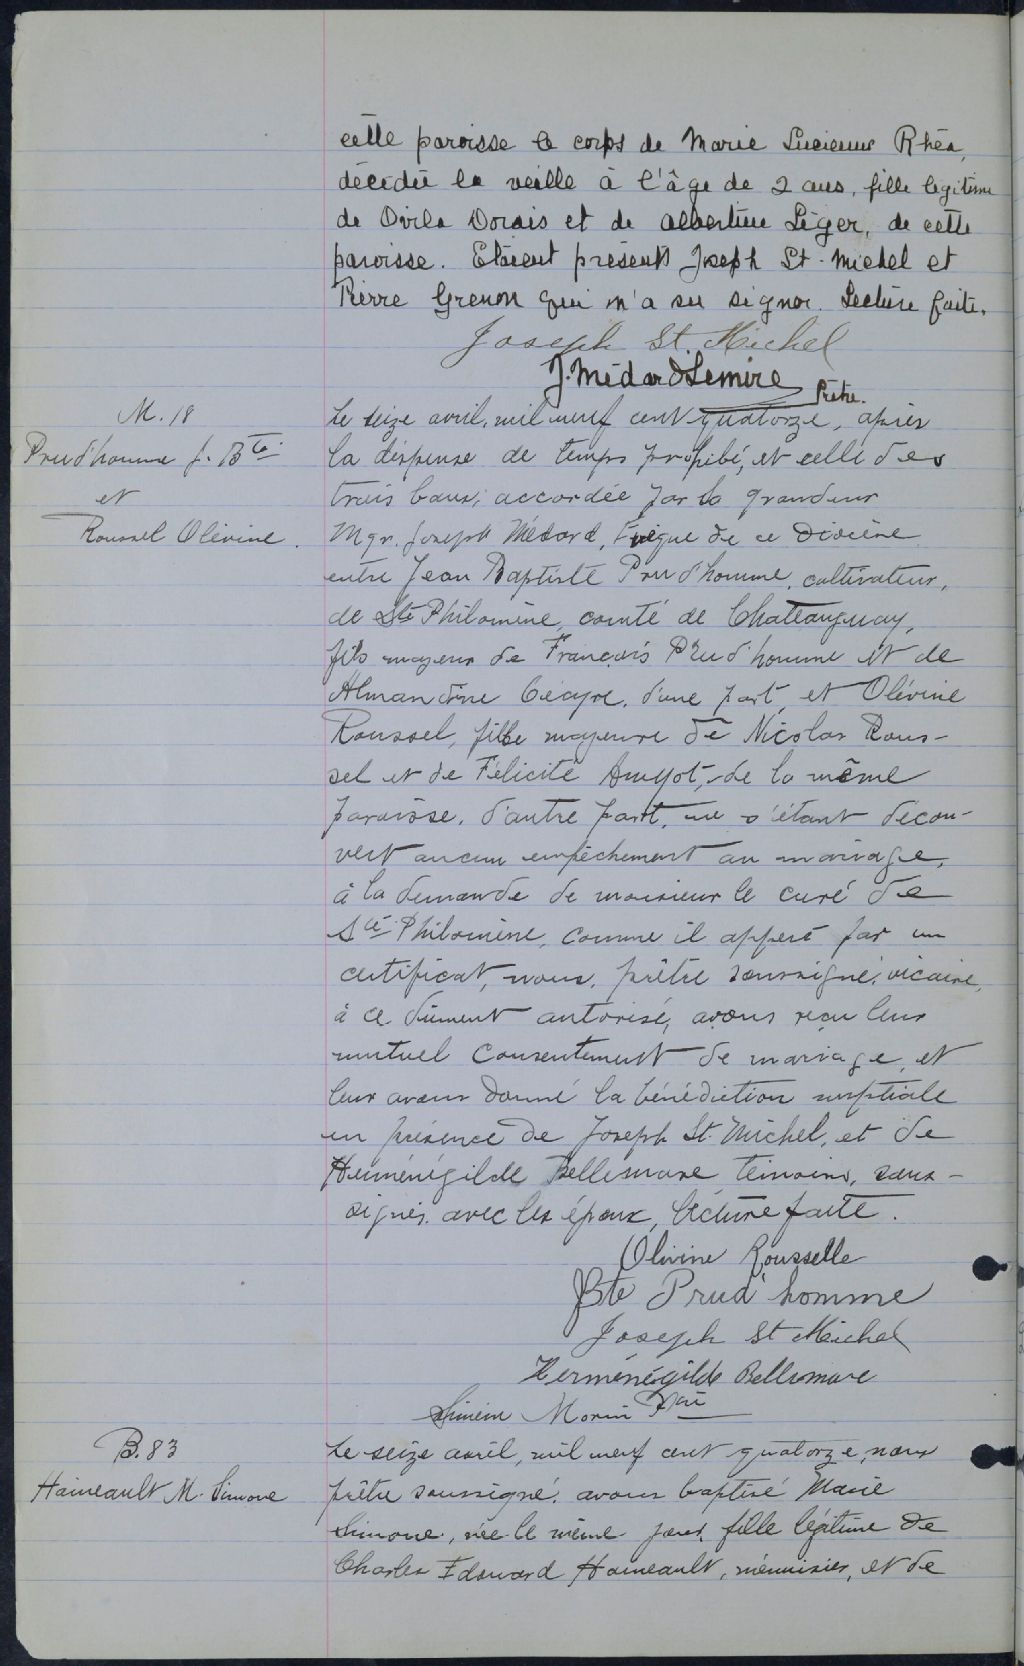 cette paroisse le corps de Marie Lucienne Rhéa,
décédée la veille à l'âge de 2 ans, fille légitime
de Ovila Dorais et de Albertine Léger, de cette
paroisse. Etaient présents Joseph St-Michel et
Pierre Grenon qui n'a su signer. Lecture faite.
Joseph St. Michel
J. Médard Lemire Prêtre.
M. 18
Prud'homme J. Bte
et
Roussel Olévine.
Le seize avril, mil neuf cent quatorze, après
la dispense de temps prohibé, et celle des
trois bans, accordée par sa grandeur
Mgr. Joseph Médard, Evêque de ce diocèse
entre Jean Baptiste Prud'homme, cultivateur,
de Ste Philomène, comté de Chateauguay,
fils majeur de François Prud'homme et de
Almandine, d'une part, et Olévine
Roussel, fille majeure de Nicolas Rous-
sel et de Félicité Amyot, de la même
paroisse, d'autre part, ne s'étant décou-
vert aucun empêchement au mariage,
à la demande de monsieur le curé de
Ste Philomène, comme il appert par un
certificat, nous, prêtre soussigné, vicaire,
à ce dûment autorisé, avons reçu leur
mutuel consentement de mariage, et
leur avons donné la bénédiction nuptiale
en présence de Joseph St. Michel, et de
Herménégilde Bellemare témoins, sous-
signés avec les époux, lecture faite.
Olivine Rousselle
JBte Prud'homme
Joseph St Michel
Herménégilde Bellemare
Siméon Morin Ptre
B. 83
Haineault M. Simone
Le seize avril, mil neuf cent quatorze, nous
prêtre soussigné, avons baptisé Marie
Simone, née le même jour, fille légitime de
Charles Edouard Haineault, menuisier, et de